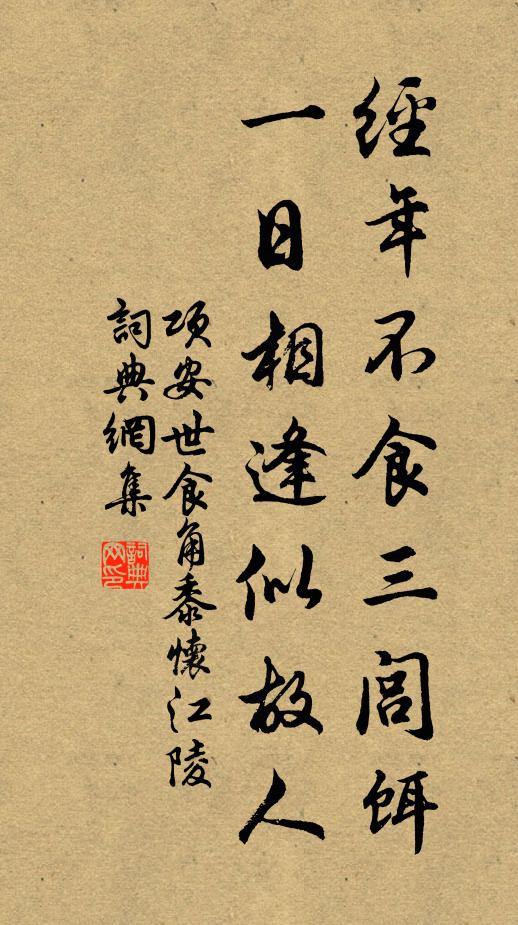 經年不食三閭餌
一日相逢似故人
項安世食角黍懷江陵
詞典網集
詞典網印